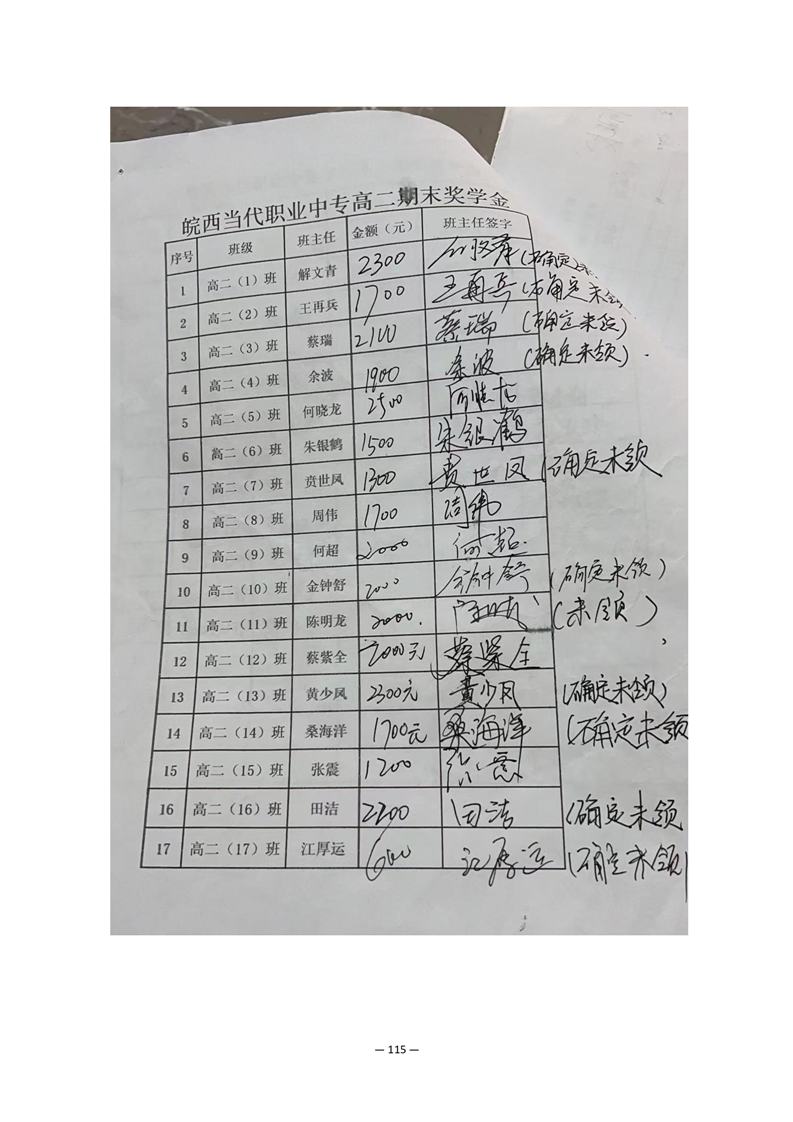 皖西当代职业中专高二期末奖学金
序号 班级 班主任 金额（元） 班主任签字
1 高二（1）班 解文青 2300 (确定未
2 高二（2）班 王再兵 1700 王再兵 (确定未领
3 高二（3）班 蔡瑞 2100 蔡瑞 (确定未领)
4 高二（4）班 余波 1900 余波 (确定未领)
5 高二（5）班 何晓龙 2500 何晓龙
6 高二（6）班 朱银鹤 1500 朱银鹤
7 高二（7）班 贲世凤 1300 贲世凤 (确定未领
8 高二（8）班 周伟 1700 周伟
9 高二（9）班 何超 2000 何超
10 高二（10）班 金钟舒 2000 金钟舒 (确定未领)
11 高二（11）班 陈明龙 2000. (未领)
12 高二（12）班 蔡紫全 2000元 蔡紫全
13 高二（13）班 黄少凤 2300元 黄少凤 (确定未领)
14 高二（14）班 桑海洋 1700元 桑海洋 (确定未领
15 高二（15）班 张震 1200
16 高二（16）班 田洁 2200 田洁 (确定未领
17 高二（17）班 江厚运 600 江厚运 (确定未领)
— 115 —